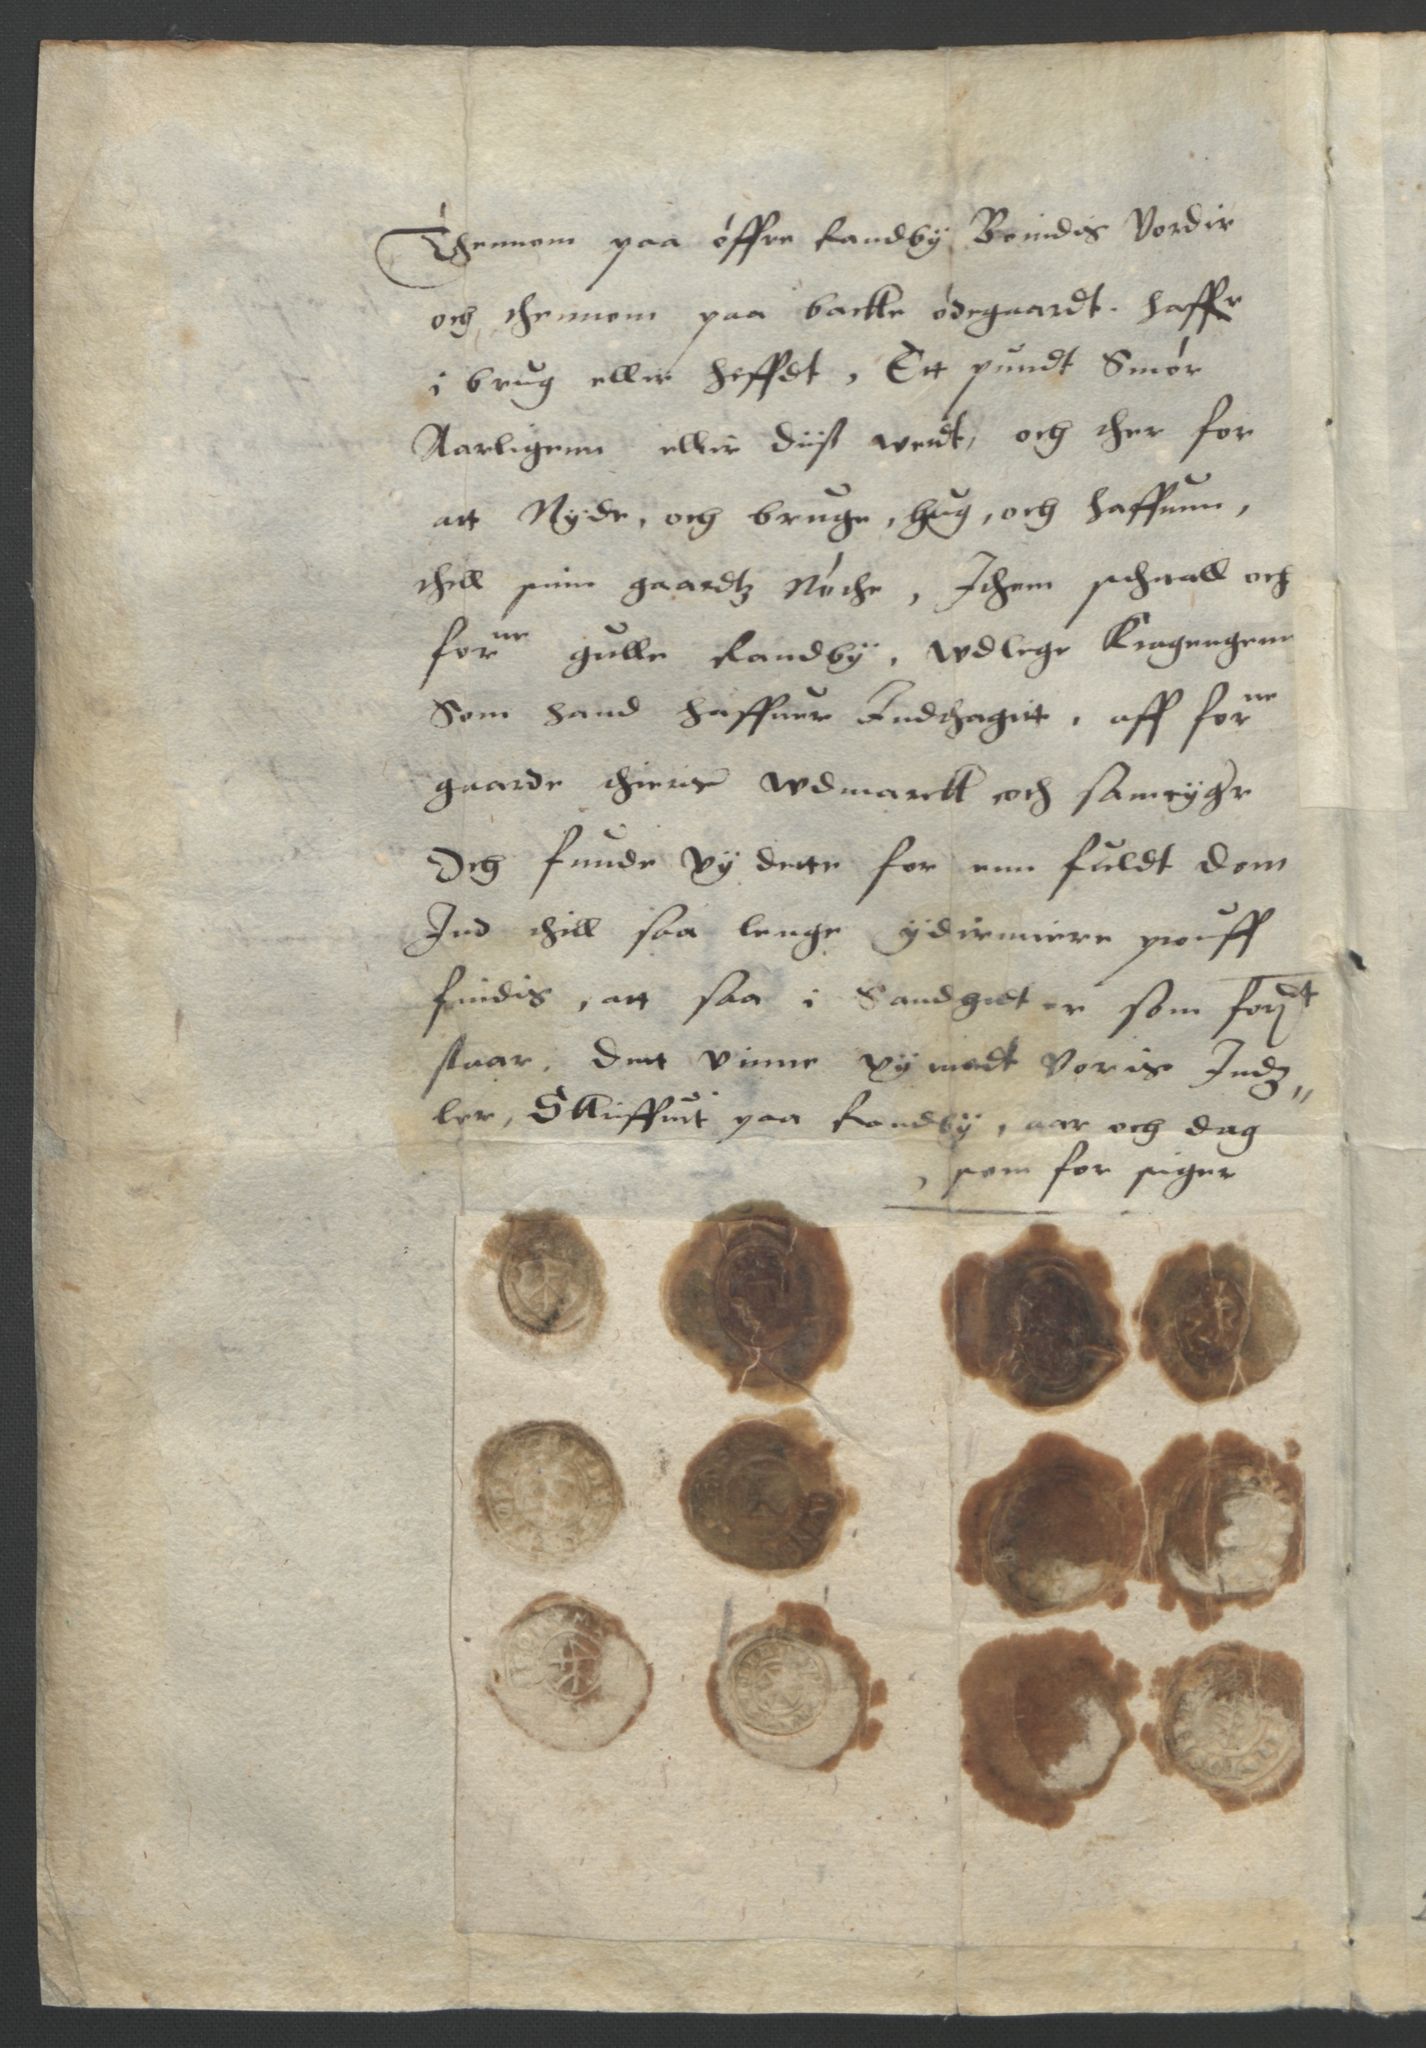 Thennom paa øffre Randbÿ Beindis Vordir
och thennom paa backe ødegaardt. haffr
i brug eller hiffdt, Ett pundt Smør
Aarligenn eller diist werdt, och ther for
att Nÿde, och bruge, hug, och haffnnn,
thill sinn gaardtz Nøthe, Jthem schaall och
forne gulle Randbÿ, wdlege Kragengenn
Som hand haffuer Indthagitt, aff forne
gaarde thieris wdmarck och sameÿghe
Och funde vÿ dette for enn fuldt dom
Ind thill saa lenge ÿdirmiere prouff
findis, att saa i Sandhedt er som forsdt
staar, dett vinne vÿ medt Voris Indz„
ler, Skriffuit paa Randbÿ, aar och dag
, som for siger